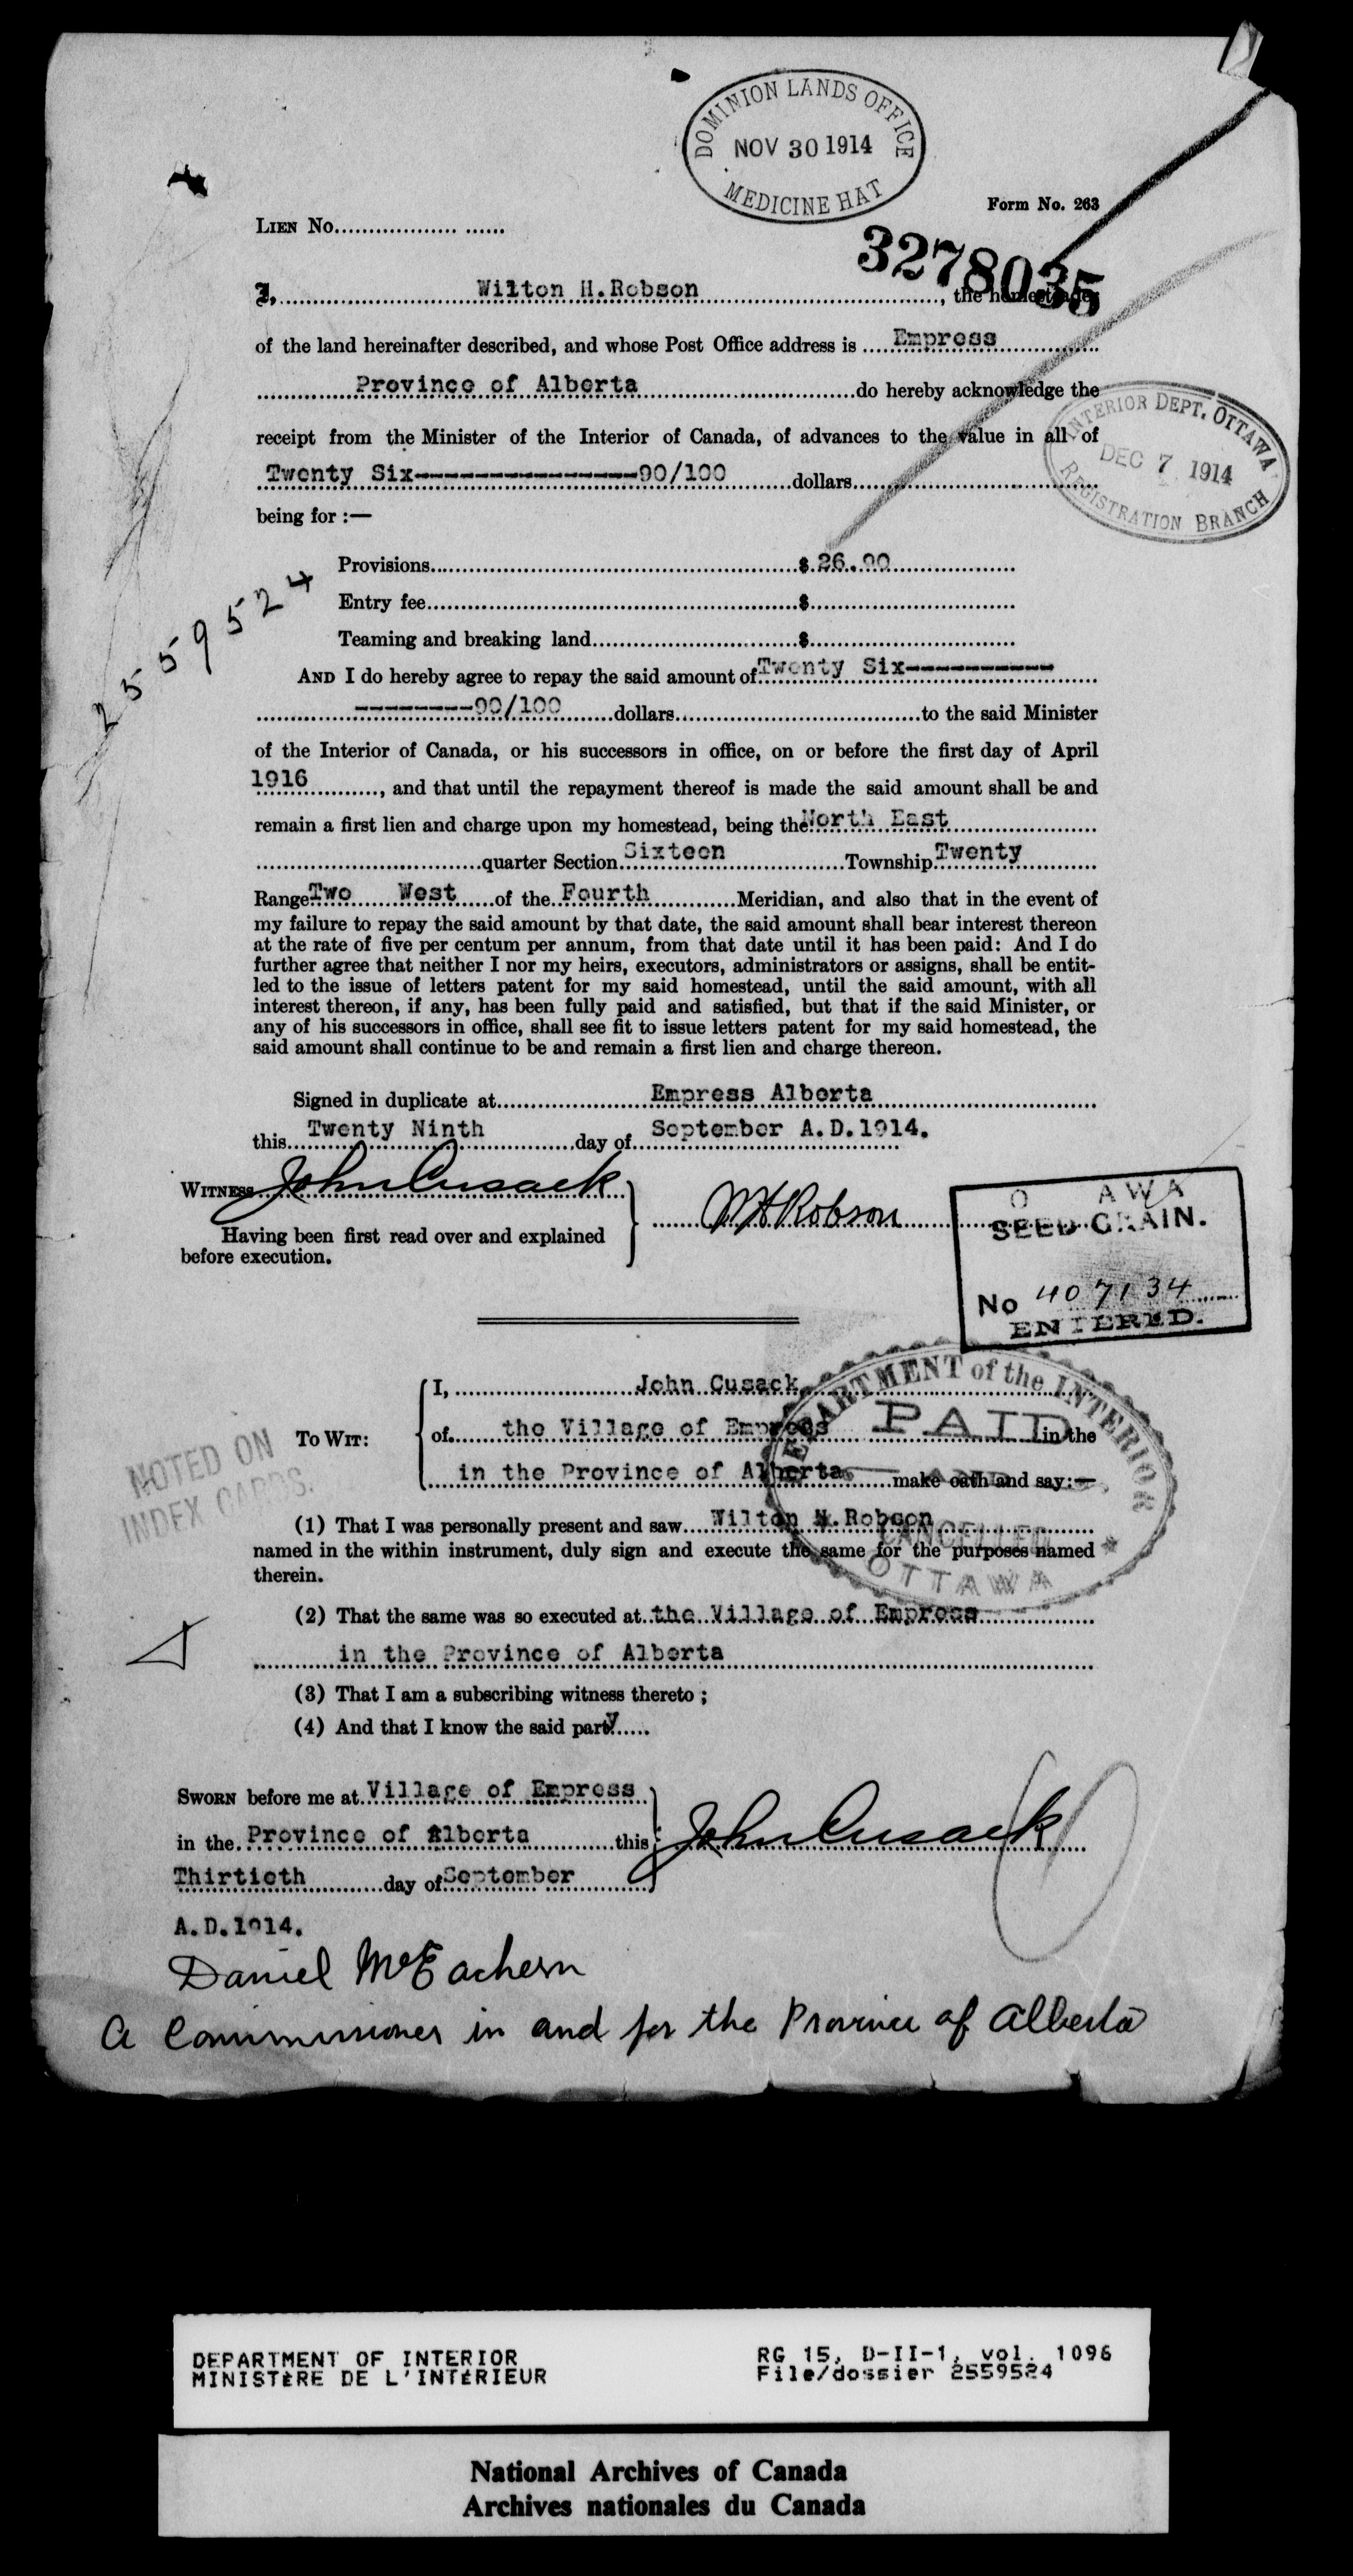 DOMINION LANDS OFFICE
NOV 30 1914
MEDICINE HAT
Form No. 263
LIEN No.
3278035
I, Wilton H. Robson, the homesteader
of the land hereinafter described, and whose Post Office address is Empress
Province of Alberta do hereby acknowledge the
INTERIOR DEPT. OTTAWA
DEC 7 1914
REGISTRATION BRANCH
receipt from the Minister of the Interior of Canada, of advances to the value in all of
Twenty Six-----------------90/100 dollars
being for :—
Provisions $ 26.90
Entry fee $
Teaming and breaking land $
2559524
AND I do hereby agree to repay the said amount of Twenty Six-----------
--------90/100 dollars to the said Minister
of the Interior of Canada, or his successors in office, on or before the first day of April
1916, and that until the repayment thereof is made the said amount shall be and
remain a first lien and charge upon my homestead, being the North East
quarter Section Sixteen Township Twenty
Range Two West of the Fourth Meridian, and also that in the event of
my failure to repay the said amount by that date, the said amount shall bear interest thereon
at the rate of five per centum per annum, from that date until it has been paid: And I do
further agree that neither I nor my heirs, executors, administrators or assigns, shall be entit-
led to the issue of letters patent for my said homestead, until the said amount, with all
interest thereon, if any, has been fully paid and satisfied, but that if the said Minister, or
any of his successors in office, shall see fit to issue letters patent for my said homestead, the
said amount shall continue to be and remain a first lien and charge thereon.
Signed in duplicate at Empress Alberta
this Twenty Ninth day of September A.D.1914.
WITNESS John Cusack
W H Robson
Having been first read over and explained
before execution.
O AWA
SEED GRAIN.
No 407134
ENTERED.
I, John Cusack
TO WIT: of the Village of Empress in the
in the Province of Alberta make oath and say:—
DEPARTMENT of the INTERIOR
PAID
AND
CANCELLED
OTTAWA
NOTED ON
INDEX CARDS.
(1) That I was personally present and saw Wilton H. Robson
named in the within instrument, duly sign and execute the same for the purposes named
therein.
(2) That the same was so executed at the Village of Empress
in the Province of Alberta
(3) That I am a subscribing witness thereto ;
(4) And that I know the said party
SWORN before me at Village of Empress
in the Province of Alberta this
John Cusack
Thirtieth day of September
A.D.1914.
Daniel McEachern
A Commissioner in and for the Province of Alberta
DEPARTMENT OF INTERIOR
MINISTÈRE DE L'INTÉRIEUR
RG 15, D-II-1, vol. 1096
File/dossier 2559524
National Archives of Canada
Archives nationales du Canada